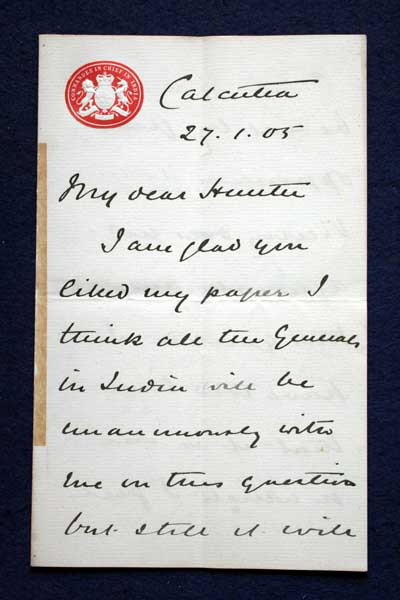 COMMANDER IN CHIEF IN INDIA
Calcutta
27.1.05
My dear Hunter
I am glad you
liked my paper I
think all the Generals
in India will be
unanimously with
me on this question
but still it will